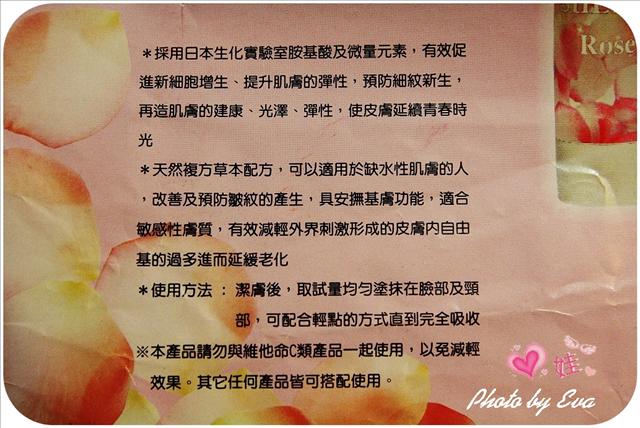 Rose
＊採用日本生化實驗室胺基酸及微量元素，有效促
進新細胞增生、提升肌膚的彈性，預防細紋新生，
再造肌膚的建康、光澤、彈性，使皮膚延續青春時
光
＊天然複方草本配方，可以適用於缺水性肌膚的人
，改善及預防皺紋的產生，具安撫基膚功能，適合
敏感性膚質，有效減輕外界刺激形成的皮膚內自由
基的過多進而延緩老化
＊使用方法：潔膚後，取試量均勻塗抹在臉部及頸
部，可配合輕點的方式直到完全吸收
※本產品請勿與維他命C類產品一起使用，以免減輕
效果。其它任何產品皆可搭配使用。
娃
Photo by Eva